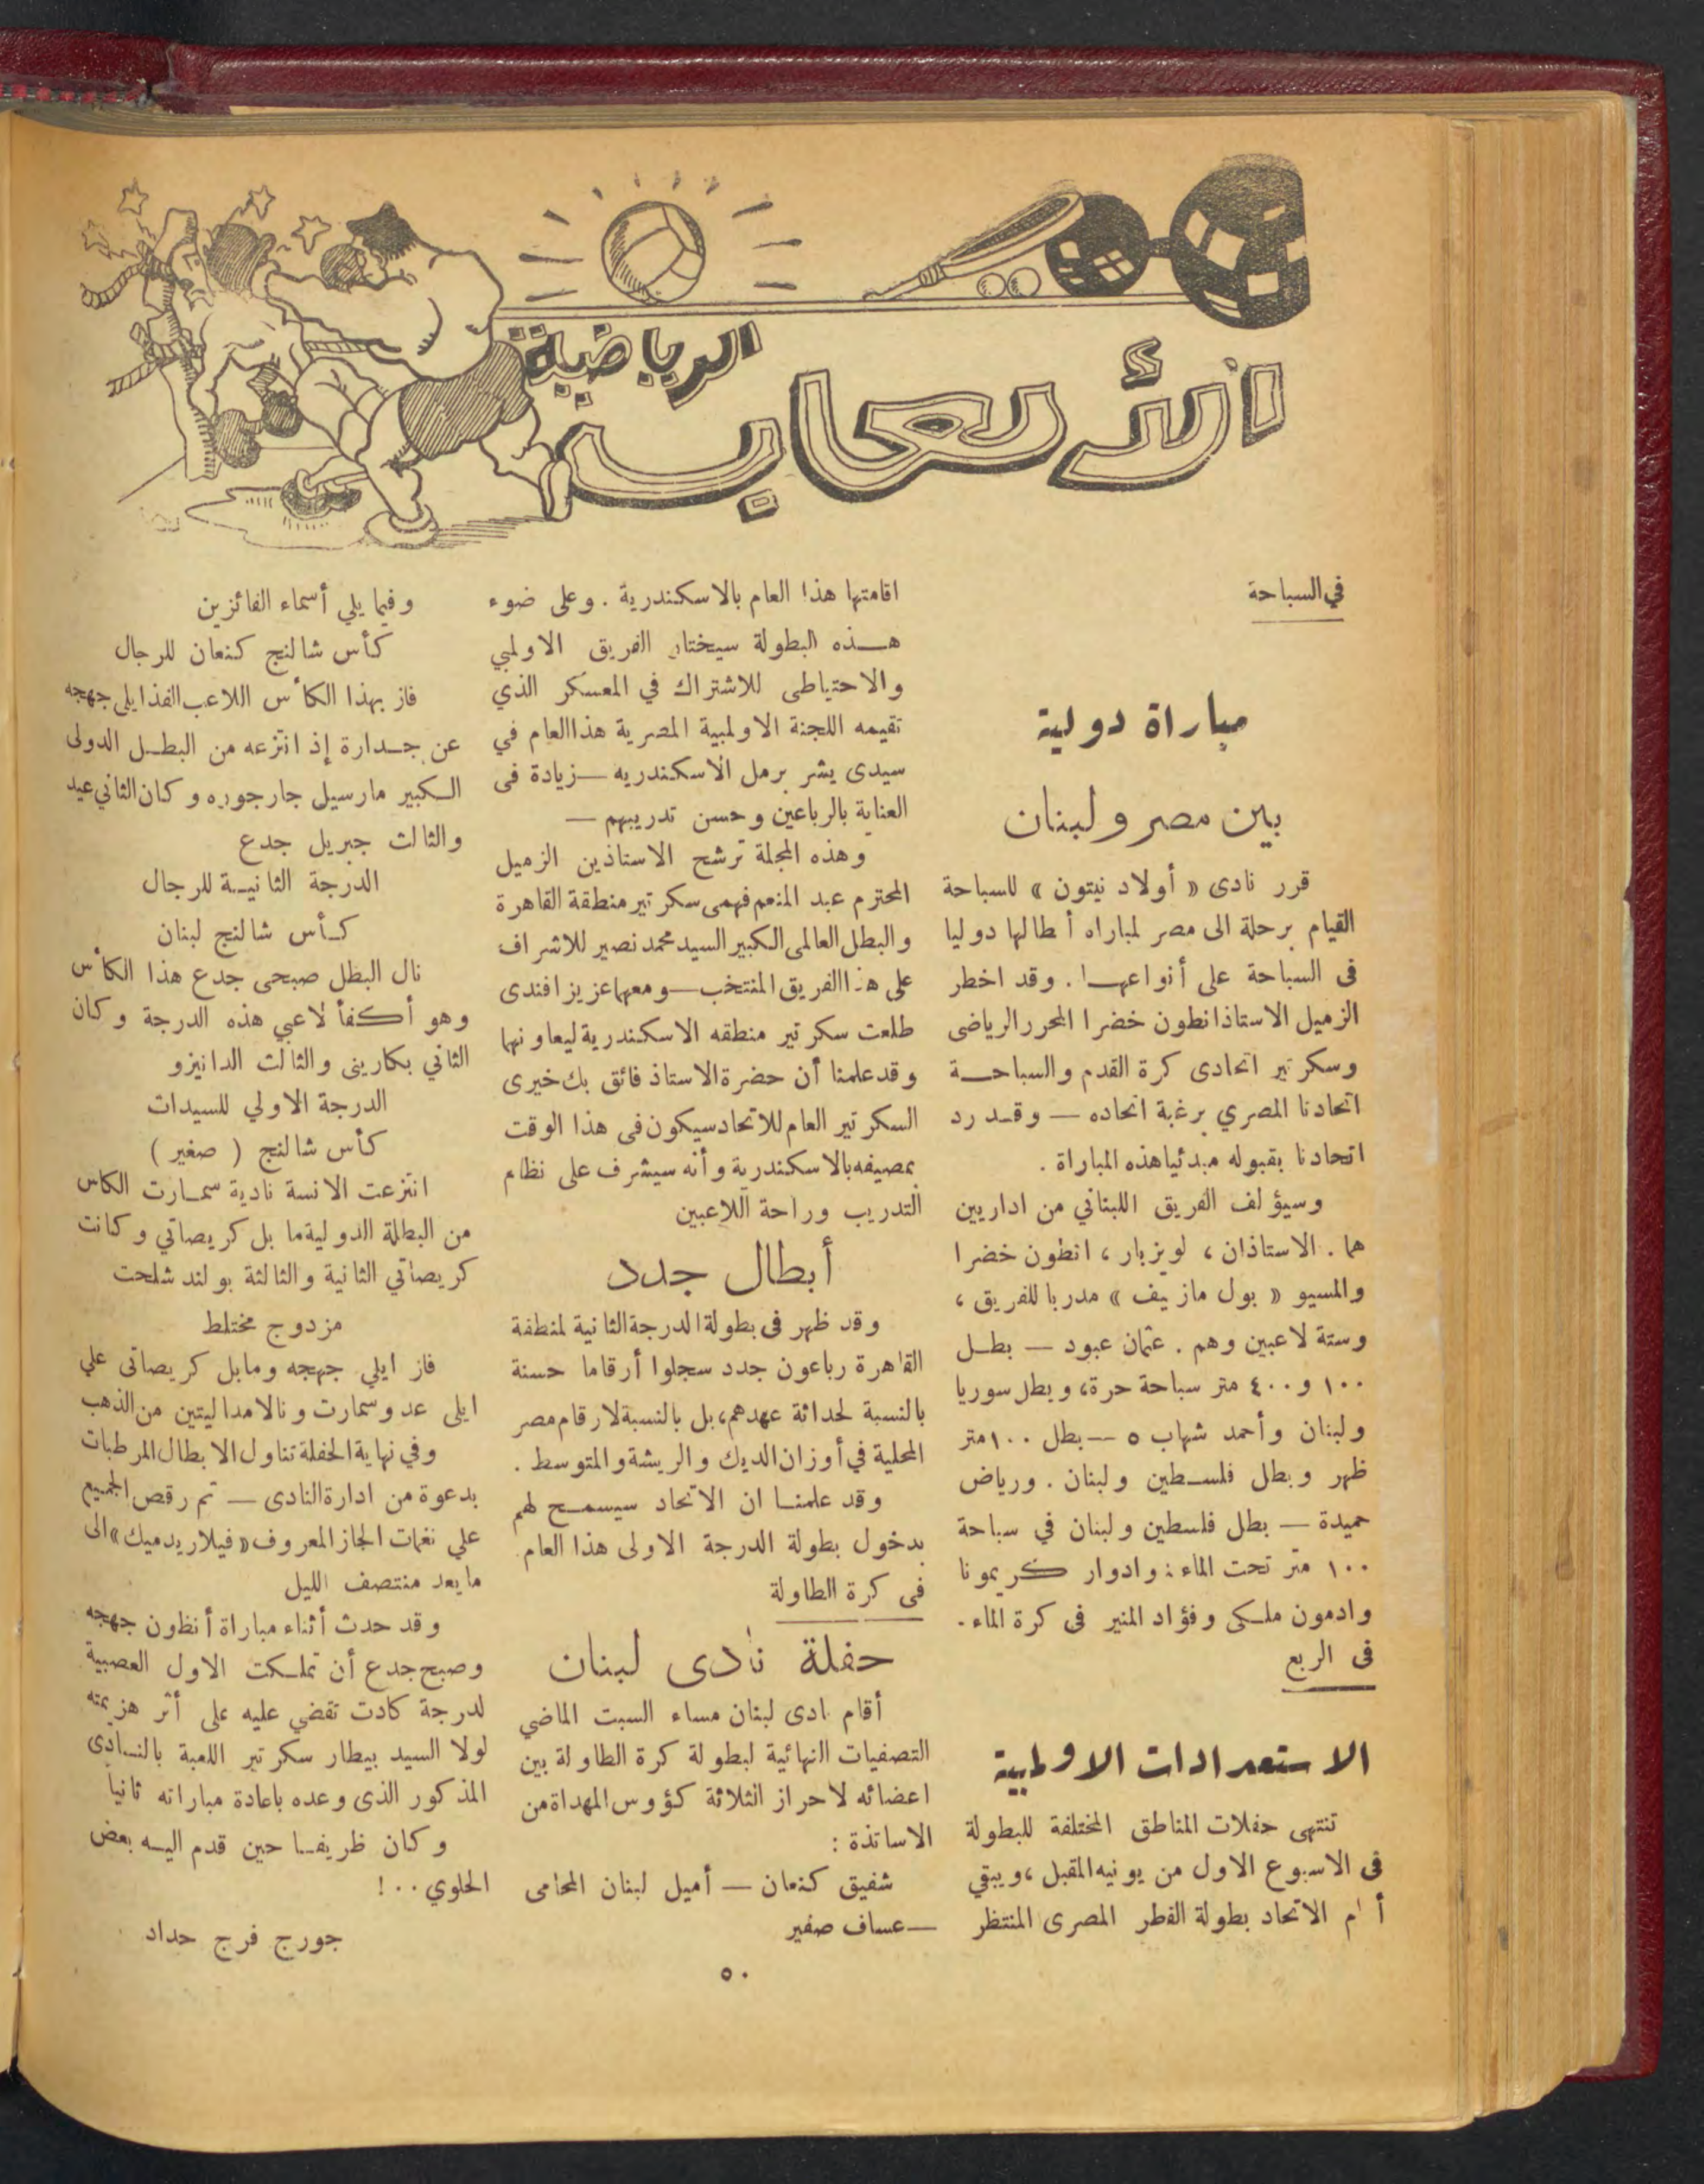 الألعاب
الرياضية
في السباحة
مباراة دولية
بين مصر ولبنان
قرر نادى « أولاد نبتون » للسباحة
القيام برحلة الى مصر لمباراه أطالها دوليا
فى السباحة على أنواعهـا . وقد اخطر
الزميل الاستاذ انطون خضرا المحرر الرياضى
وسكرتير اتحادى كرة القدم والسباحـــة
اتحادنا المصري برغبة اتحاده — وقـد رد
اتحادنا بقبوله مبدئيا هذه المباراة .
وسيؤلف الفريق اللبناني من اداريين
هما . الاستاذان ، لويزبار ، انطون خضرا
والمسيو « بول مازييف » مدربا للفريق ،
وستة لاعبين وهم . عثمان عبود — بطـل
١٠٠ و ٤٠٠ متر سباحة حرة، وبطل سوريا
ولبنان وأحمد شهاب ٥ — بطل ١٠٠ متر
ظهر وبطل فلسـطين ولبنان . ورياض
حميدة — بطل فلسطين ولبنان في سباحة
١٠٠ متر تحت الماء : وادوار كريمونا
وادمون ملـكى وفؤاد المنير فى كرة الماء .
فى الربع
الاستعدادات الاولمبية
تنتهى حفلات المناطق المختلفة للبطولة
فى الاسبوع الاول من يونيه المقبل ، ويبقي
أ ام الاتحاد بطولة القطر المصرى المنتظر
اقامتها هذا العام بالاسكندرية . وعلى ضوء
هـــذه البطولة سيختار الفريق الاولمبي
والاحتياطى للاشتراك في المعسكر الذي
تقيمه اللجنة الاولمبية المصرية هذا العام في
سيدى بشر برمل الاسكندريه — زيادة فى
العناية بالرباعين وحسن تدريبهم —
وهذه المجلة ترشح الاستاذين الزميل
المحترم عبد المنعم فهمى سكرتير منطقة القاهرة
والبطل العالمى الكبير السيد محمد نصير للاشراف
على هذا الفريق المنتخب — ومعهما عزيز افندى
طلعت سكرتير منطقه الاسكندرية ليعاونهما
وقد علمنا أن حضرة الاستاذ فائق بك خيرى
السكرتير العام للاتحاد سيكون فى هذا الوقت
بمصيفه بالاسكندرية وأنه سيشرف على نظام
التدريب وراحة اللاعبين
أبطال جدد
وقد ظهر فى بطولة الدرجة الثانية لمنطقة
القاهرة رباعون جدد سجلوا أرقاما حسنة
بالنسبة لحداثة عهدهم، بل بالنسبة لارقام مصر
المحلية في أوزان الديك والريشة والمتوسط .
وقد علمنـا ان الاتحاد سيسمـح لهم
بدخول بطولة الدرجة الاولى هذا العام
فى كرة الطاولة
حفلة نادى لبنان
أقام ادى لبنان مساء السبت الماضي
التصفيات النهائية لبطولة كرة الطاولة بين
اعضائه لاحراز الثلاثة كؤوس المهداة من
الاساتذة :
شفيق كنعان — أميل لبنان المحامى
— عساف صفير
وفيما يلي أسماء الفائزين
كأس شالنج كنعان للرجال
فاز بهذا الكأس اللاعب الفذ ايلى جهجه
عن جـدارة إذ انتزعه من البطـل الدولى
الـكبير مارسيل جارجوره وكان الثاني عيد
والثالث جبريل جدع
الدرجة الثانيـة للرجال
كـأس شالنج لبنان
نال البطل صبحى جدع هذا الكأس
وهو أكفأ لاعبي هذه الدرجة وكان
الثاني بكارينى والثالث الدانيزو
الدرجة الاولي للسيدات
كأس شالنج ( صغير )
انتزعت الانسة نادية سمـارت الكاس
من البطلة الدولية مابل كريصاتي وكانت
كريصاتي الثانية والثالثة بولند شلحت
مزدوج مختلط
فاز ايلي جهجه ومابل كريصاتى علي
ايلى عد وسمارت ونالا مداليتين من الذهب
وفي نهاية الحفلة تناول الابطال المرطبات
بدعوة من ادارة النادى — تم رقص الجميع
علي نغمات الجاز المعروف «فيلاريدميك» الى
مابعد منتصف الليل
وقد حدث أثناء مباراة أنطون جهجه
وصبح جدع أن تملـكت الاول العصبية
لدرجة كادت تقضي عليه على أثر هزيمته
لولا السيد بيطار سكرتير اللعبة بالنـادى
المذكور الذى وعده باعادة مباراته ثانيا
وكان ظريفـا حين قدم اليـه بعض
الحلوي . . !
جورج فرج حداد
٥٠